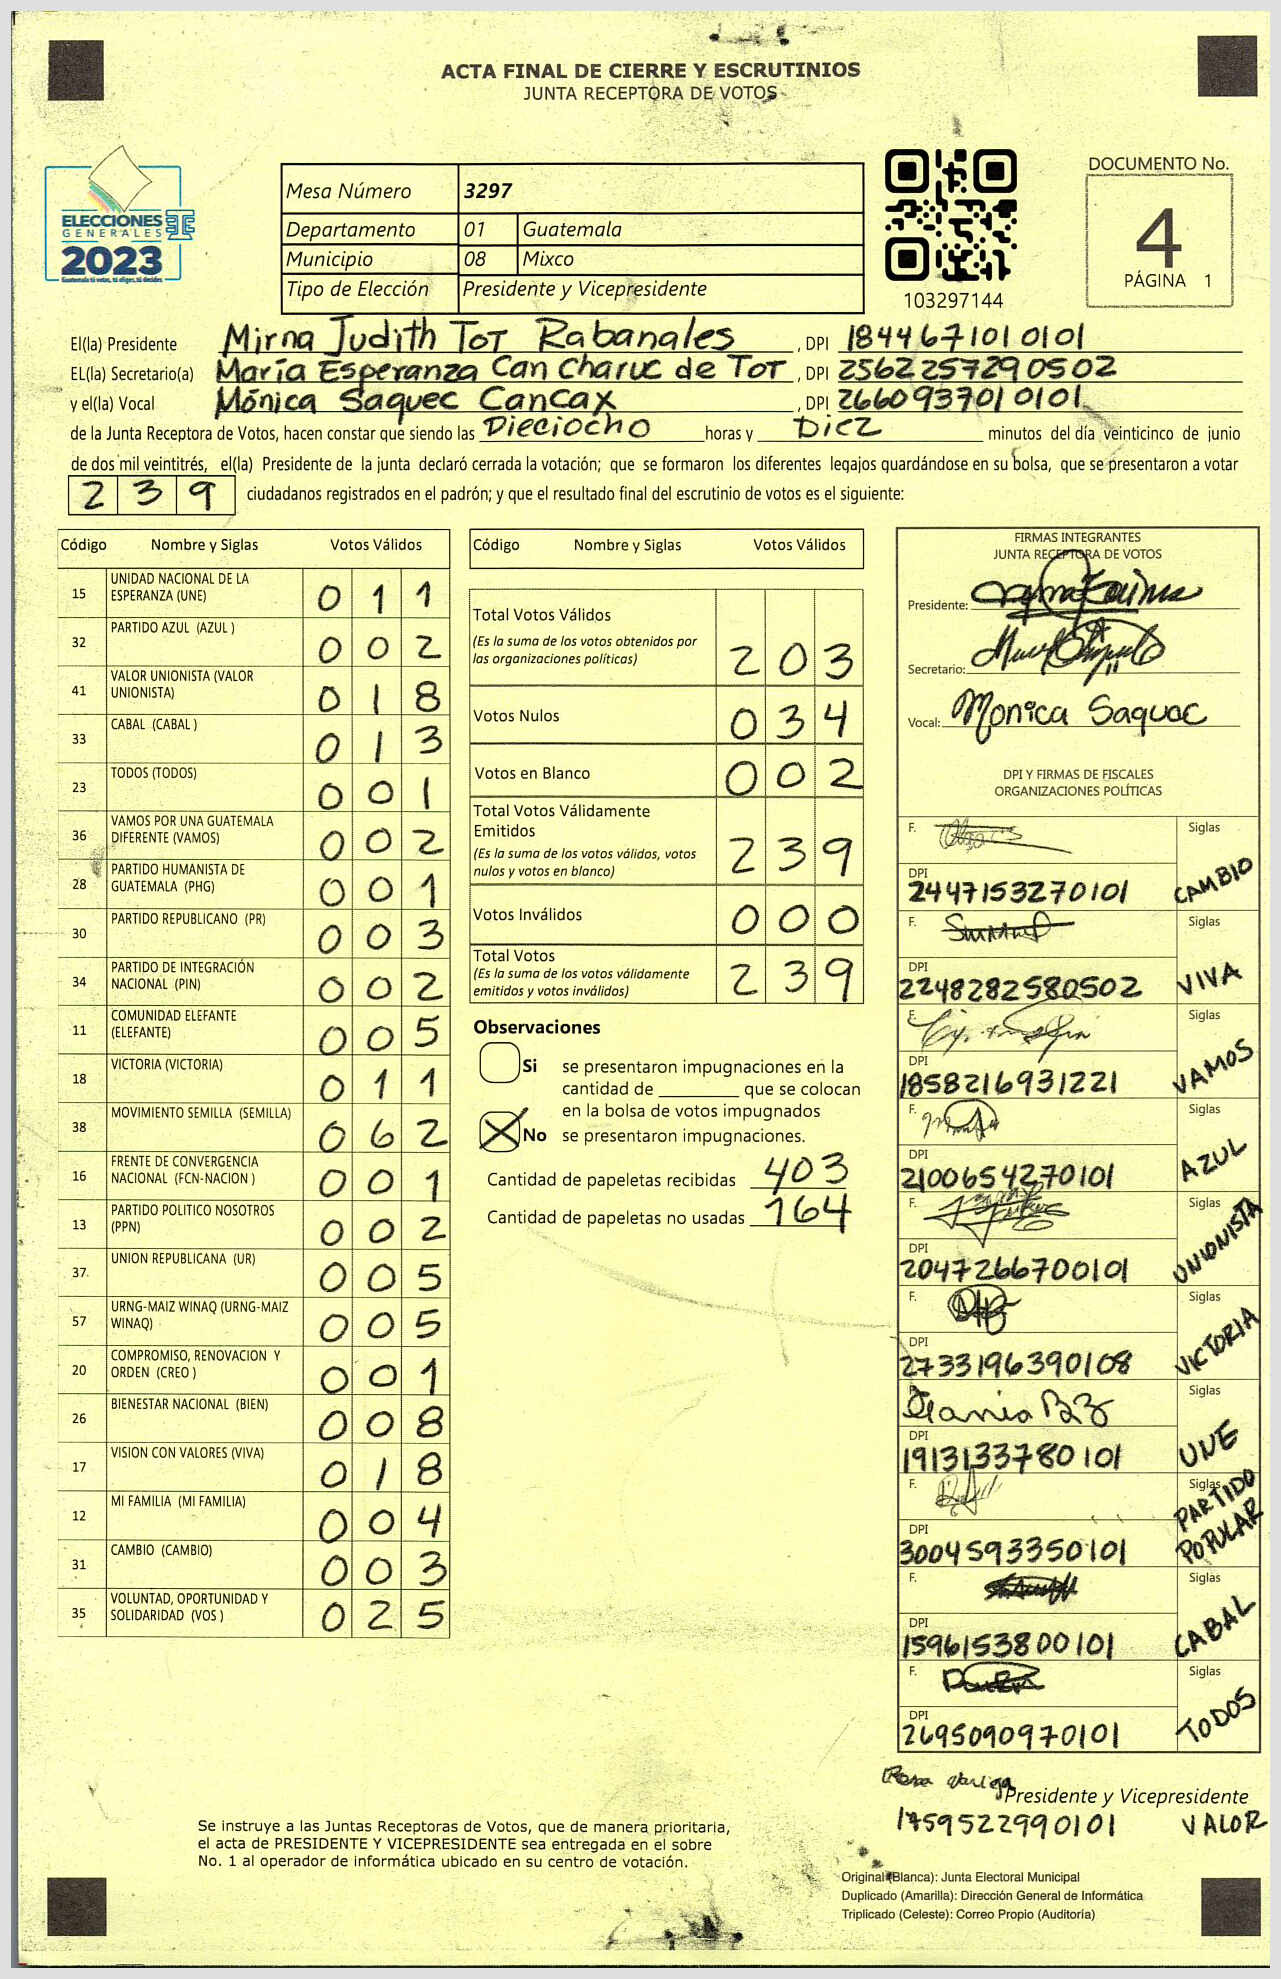 ACTA FINAL DE CIERRE Y ESCRUTINIOS
JUNTA RECEPTORA DE VOTOS
ELECCIONES
GENERALES
2023
Mesa Número 3297
Departamento 01 Guatemala
Municipio 08 Mixco
Tipo de Elección Presidente y Vicepresidente
103297144
DOCUMENTO No.
4
PÁGINA 1
El(la) Presidente Mirna Judith Tot Rabanales, DPI 1844671010101
EL(la) Secretario(a) María Esperanza Can Charuc de Tot, DPI 2562257290502
y el(la) Vocal Mónica Saquec Cancax, DPI 2660937010101
de la Junta Receptora de Votos, hacen constar que siendo las Dieciocho horas y Diez minutos del día veinticinco de junio
de dos mil veintitrés, el(la) Presidente de la junta declaró cerrada la votación; que se formaron los diferentes legajos quardándose en su bolsa, que se presentaron a votar
239 ciudadanos registrados en el padrón; y que el resultado final del escrutinio de votos es el siguiente:
Código Nombre y Siglas Votos Válidos
15 UNIDAD NACIONAL DE LA ESPERANZA (UNE) 011
32 PARTIDO AZUL (AZUL ) 002
41 VALOR UNIONISTA (VALOR UNIONISTA) 018
33 CABAL (CABAL ) 013
23 TODOS (TODOS) 001
36 VAMOS POR UNA GUATEMALA DIFERENTE (VAMOS) 002
28 PARTIDO HUMANISTA DE GUATEMALA (PHG) 001
30 PARTIDO REPUBLICANO (PR) 003
34 PARTIDO DE INTEGRACIÓN NACIONAL (PIN) 002
11 COMUNIDAD ELEFANTE (ELEFANTE) 005
18 VICTORIA (VICTORIA) 011
38 MOVIMIENTO SEMILLA (SEMILLA) 062
16 FRENTE DE CONVERGENCIA NACIONAL (FCN-NACION ) 001
13 PARTIDO POLITICO NOSOTROS (PPN) 002
37 UNION REPUBLICANA (UR) 005
57 URNG-MAIZ WINAQ (URNG-MAIZ WINAQ) 005
20 COMPROMISO, RENOVACION Y ORDEN (CREO ) 001
26 BIENESTAR NACIONAL (BIEN) 008
17 VISION CON VALORES (VIVA) 018
12 MI FAMILIA (MI FAMILIA) 004
31 CAMBIO (CAMBIO) 003
35 VOLUNTAD, OPORTUNIDAD Y SOLIDARIDAD (VOS ) 025
Código Nombre y Siglas Votos Válidos
Total Votos Válidos 203
(Es la suma de los votos obtenidos por
las organizaciones políticas)
Votos Nulos 034
Votos en Blanco 002
Total Votos Válidamente
Emitidos 239
(Es la suma de los votos válidos, votos
nulos y votos en blanco)
Votos Inválidos 000
Total Votos 239
(Es la suma de los votos válidamente
emitidos y votos inválidos)
Observaciones
Si se presentaron impugnaciones en la
cantidad de ________ que se colocan
en la bolsa de votos impugnados
X No se presentaron impugnaciones.
Cantidad de papeletas recibidas 403
Cantidad de papeletas no usadas 164
FIRMAS INTEGRANTES
JUNTA RECEPTORA DE VOTOS
Presidente:
Secretario:
Vocal: Monica Saquec
DPI Y FIRMAS DE FISCALES
ORGANIZACIONES POLÍTICAS
F. Siglas
DPI
2447153270101 CAMBIO
F. Siglas
DPI
2248282580502 VIVA
F. Siglas
DPI
1858216931221 VAMOS
F. Siglas
DPI
2100654270101 AZUL
F. Siglas
DPI
2047266700101 UNIONISTA
F. Siglas
DPI
2733196390108 VICTORIA
F. Siglas
DPI
1913133780101 UNE
F. Siglas
DPI
3004593350101 PARTIDO POPULAR
F. Siglas
DPI
1596153800101 CABAL
F. Siglas
DPI
2695090970101 TODOS
Rosa
Presidente y Vicepresidente
1759522990101 VALOR
Se instruye a las Juntas Receptoras de Votos, que de manera prioritaria,
el acta de PRESIDENTE Y VICEPRESIDENTE sea entregada en el sobre
No. 1 al operador de informática ubicado en su centro de votación.
Original (Blanca): Junta Electoral Municipal
Duplicado (Amarilla): Dirección General de Informática
Triplicado (Celeste): Correo Propio (Auditoría)